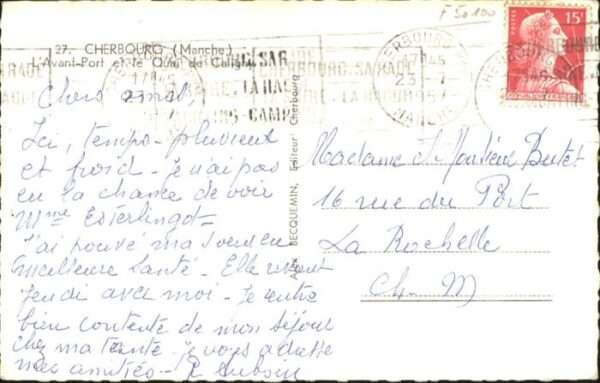 F 50100
27. CHERBOURG (Manche)
L'Avant-Port et le Quai de Caligny
POSTES
15F
CHERBOURG
17 45
23 - 7
1957
MANCHE
CHERBOURG. SA RADE
LA HAGUE. CAMP
Chers amis,
Ici, temps pluvieux
et froid - je n'ai pas
eu la chance de voir
Mme Esterlingot -
J'ai trouvé ma soeur en
meilleure santé - Elle vient
jeudi avec moi - Je rentre
bien contente de mon séjour
chez ma tante. je vous adresse
mes amitiés -
Anc. BECQUEMIN, Editeur Cherbourg
Madame et Monsieur Butet
16 rue du Port
La Rochelle
Ch. M